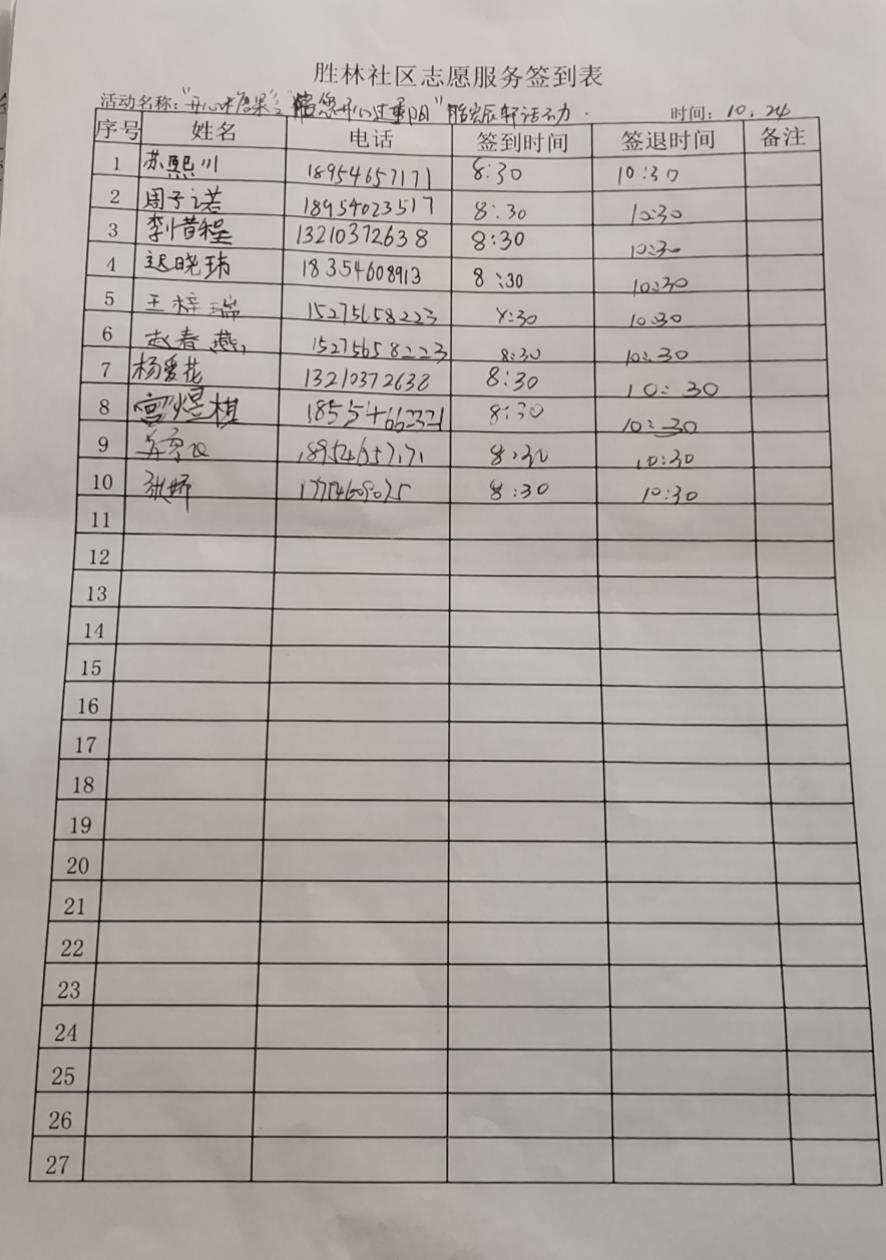 胜林社区志愿服务签到表
活动名称："开心 糖果 您开心过重阳" 活动 时间：10.24
序号 姓名 电话 签到时间 签退时间 备注
1 苏熙川 18954657171 8:30 10:30
2 周子诺 18954023517 8:30 10:30
3 李惜程 13210372638 8:30 10:30
4 迟晓玮 18354608913 8:30 10:30
5 王梓瑞 15275658223 8:30 10:30
6 赵春燕 15275658223 8:30 10:30
7 杨爱花 13210372638 8:30 10:30
8 宫煜棋 18554662321 8:30 10:30
9 18954657171 8:30 10:30
10 张娇 8:30 10:30
11
12
13
14
15
16
17
18
19
20
21
22
23
24
25
26
27